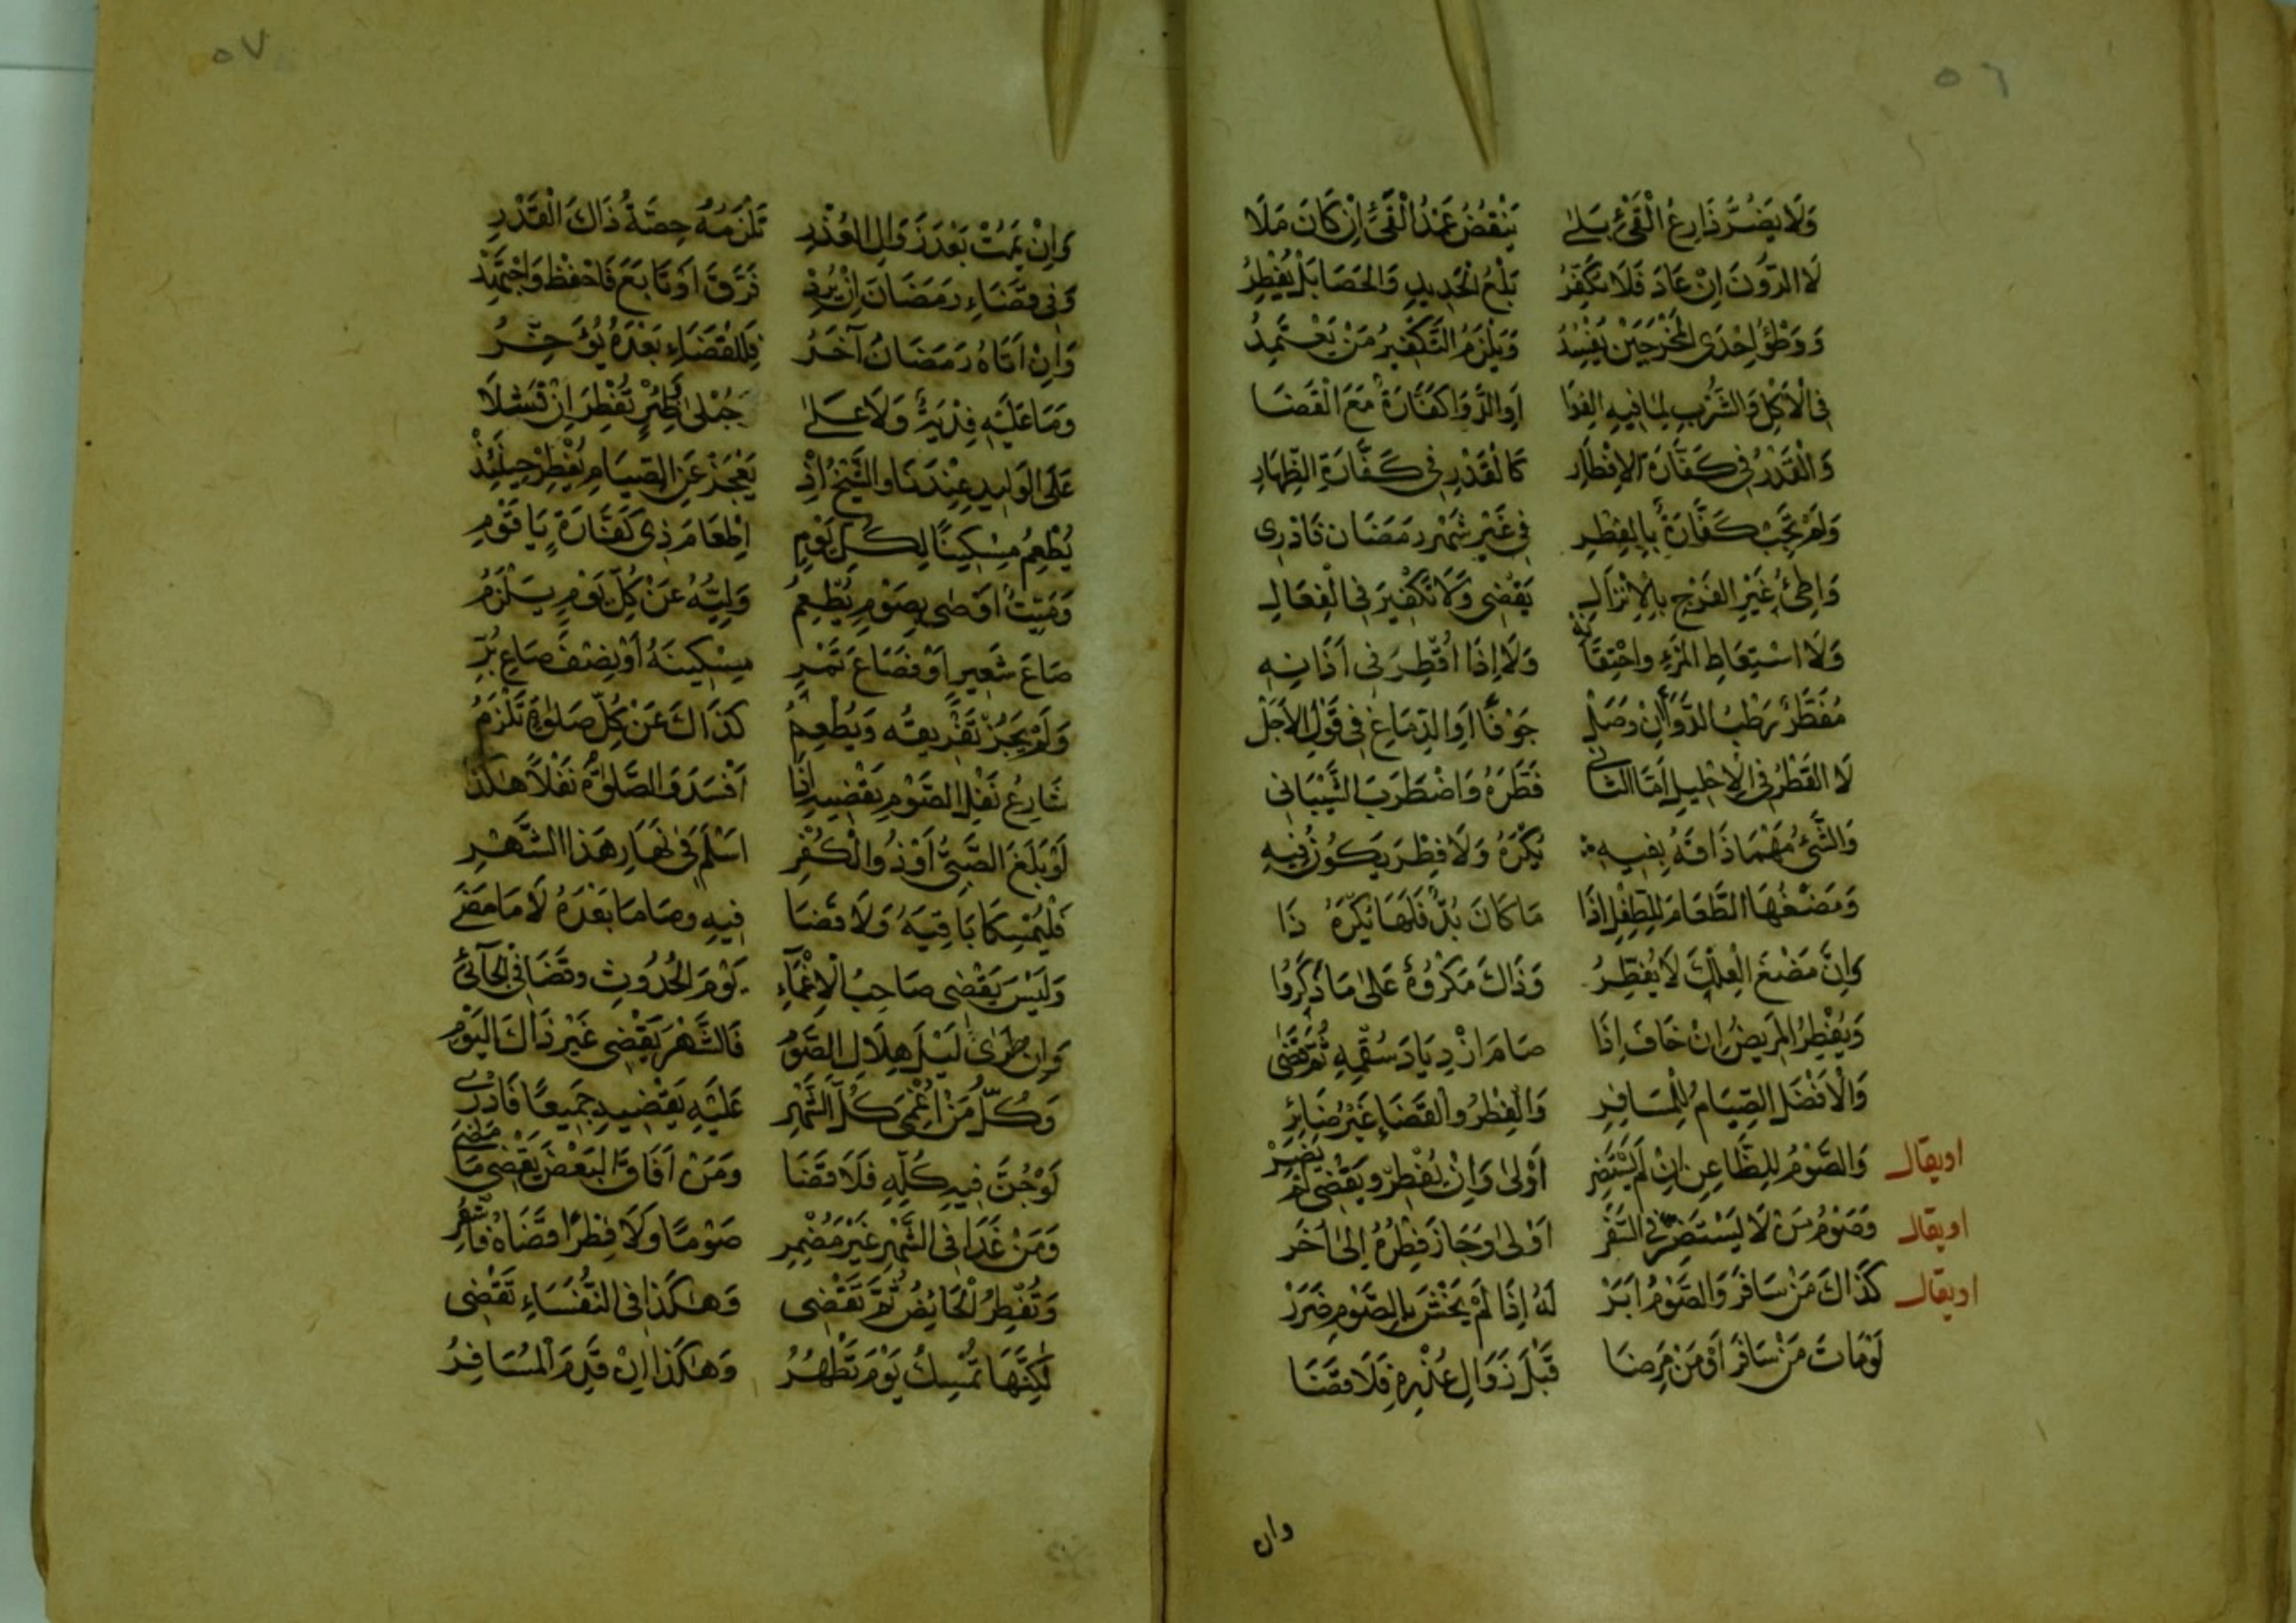 ٥٦
وَلَا يَضُرُّ ذَارِعُ الْقَيْءِ بَلَى يَنْقُضُ عَمْدُ الْقَيْءِ إِنْ كَانَ مَلَا
لَا الدُّونَ إِنْ عَادَ فَلَا يُكَفِّرُ بَلْعُ الْحَدِيدِ وَالْحَصَا بَلْ يُفْطِرُ
وَوَطْؤُ إِحْدَى الْمَخْرَجَيْنِ يُفْسِدُ وَيَلْزَمُ التَّكْفِيرُ مَنْ يَعْتَمِدُ
فِي الْأَكْلِ وَالشُّرْبِ لِمَا فِيهِ الْغِذَا أَوِ الدَّوَا كَفَّارَةٌ مَعَ الْقَضَا
وَالْقَدْرُ فِي كَفَّارَةِ الْإِفْطَارِ كَالْقَدْرِ فِي كَفَّارَةِ الظِّهَارِ
وَلَمْ تَجِبْ كَفَّارَةٌ بِالْفِطْرِ فِي غَيْرِ شَهْرِ رَمَضَانَ فَادْرِي
وَاطِئُ غَيْرِ الْفَرْجِ بِالْإِنْزَالِ يَقْضِي وَلَا تَكْفِيرَ فِي الْفِعَالِ
وَلَا اسْتِعَاطِ الْمَرْءِ وَاحْتِقَانِهِ وَلَا إِذَا أُقْطِرَ فِي آذَانِهِ
مُفَطِّرٌ رَطْبُ الدَّوَا إِنْ وَصَلْ جَوْفًا أَوِ الدِّمَاغَ فِي قَوْلِ الْأَجَلْ
لَا الْقَطْرُ فِي الْإِحْلِيلِ أَمَّا الثَّانِي فَطَّرَهُ وَاضْطَرَبَ الشَّيْبَانِي
وَالشَّيْءُ مَهْمَا ذَاقَهُ بِفِيهِ يُكْرَهُ وَلَا فِطْرَ يَكُونُ فِيهِ
وَمَضْغُهَا الطَّعَامَ لِلطِّفْلِ إِذَا مَا كَانَ بُدٌّ فَلَهَا يُكْرَهُ ذَا
وَإِنَّ مَضْغَ الْعِلْكِ لَا يُفَطِّرُ وَذَاكَ مَكْرُوهٌ عَلَى مَا ذَكَرُوا
وَيُفْطِرُ الْمَرِيضُ إِنْ خَافَ إِذَا صَامَ ازْدِيَادَ سُقْمِهِ ثُمَّ قَضَى
وَالْأَفْضَلُ الصِّيَامُ لِلْمُسَافِرِ وَالْفِطْرُ وَالْقَضَاءِ غَيْرُ ضَائِرِ
او يقال وَالصَّوْمُ لِلظَّاعِنِ إِنْ لَمْ يَسْتَضِرْ أَوْلَى وَإِنْ يُفْطِرْ وَيَقْضِي لَمْ يَضِرْ
او يقال وَصَوْمُ مَنْ لَا يَسْتَضِرُّ فِي السَّفَرْ أَوْلَى وَجَازَ فِطْرُهُ إِلَى أُخَرْ
او يقال كَذَاكَ مَنْ سَافَرَ وَالصَّوْمُ أَبَرْ لَهُ إِذَا لَمْ يَخْشَ بِالصَّوْمِ ضَرَرْ
لَوْ مَاتَ مَنْ سَافَرَ أَوْ مَنْ مَرِضَا قَبْلَ زَوَالِ عُذْرِهِ فَلَا قَضَا
وان
٥٧
وَإِنْ يَمُتْ بَعْدَ زَوَالِ الْعُذْرِ تَلْزَمُهُ حِصَّةُ ذَاكَ الْقَدْرِ
وَفِي قَضَاءِ رَمَضَانَ إِنْ يُرِدْ فَرَّقَ أَوْ تَابَعَ فَاحْفَظْ وَاجْتَهِدْ
وَإِنْ أَتَاهُ رَمَضَانٌ آخَرُ فَلِلْقَضَاءِ بَعْدَهُ يُؤَخِّرُ
وَمَا عَلَيْهِ فِدْيَةٌ وَلَا عَلَى حُبْلَى وَظِئْرٍ تُفْطِرَ إِنْ تَسَلَا
عَلَى الْوَلِيدِ عِنْدَنَا وَالشَّيْخُ إِذْ يَعْجَزُ عَنِ الصِّيَامِ يُفْطِرْ حِينَئِذْ
يُطْعِمُ مِسْكِينًا لِكُلِّ يَوْمِ إِطْعَامَ ذِي كَفَّارَةٍ يَا قَوْمِ
وَمَيِّتٌ أَوْصَى بِصَوْمٍ يُطْعِمُ وَلِيُّهُ عَنْ كُلِّ يَوْمٍ يَلْزَمُ
صَاعَ شَعِيرٍ أَوْ فَصَاعَ تَمْرِ مِسْكِينَهُ أَوْ نِصْفَ صَاعِ بُرِّ
وَلَمْ يَجُزْ تَفْرِيقُهُ وَيُطْعِمُ كَذَاكَ عَنْ كُلِّ صَلَوةٍ تَلْزَمُ
شَارِعُ نَفْلِ الصَّوْمِ يَقْضِيهِ إِذَا أَفْسَدَ وَالصَّلَوةُ نَفْلًا هَكَذَا
لَوْ بَلَغَ الصَّبِيُّ أَوْ ذُو الْكُفْرِ أَسْلَمَ فِي نَهَارِ هَذَا الشَّهْرِ
فَلْيُمْسِكَا بَاقِيَهُ وَلَا قَضَا فِيهِ وَصَامَا بَعْدَهُ لَا مَا مَضَى
وَلَيْسَ يَقْضِي صَاحِبُ الْإِغْمَاءِ يَوْمَ الْحُدُوثِ وَقَضَا فِي الْجَائِي
وَإِنْ طَرَى لَيْلَ هِلَالِ الصَّوْمِ فَالشَّهْرَ يَقْضِي غَيْرَ ذَاكَ الْيَوْمِ
وَكُلُّ مَنْ أُغْمِيَ كُلَّ الشَّهْرِ عَلَيْهِ يَقْضِيهِ جَمِيعًا فَادْرِي
لَوْ جُنَّ فِيهِ كُلِّهِ فَلَا قَضَا وَمَنْ أَفَاقَ الْبَعْضَ يَقْضِي مَا مَضَى
وَمَنْ غَدَا فِي الشَّهْرِ غَيْرَ مُضْمِرِ صَوْمًا وَلَا فِطْرًا قَضَاهُ
وَتُفْطِرُ الْحَائِضُ ثُمَّ تَقْضِي وَهَكَذَا فِي النُّفَسَاءِ تَقْضِي
لَكِنَّهَا تُمْسِكُ يَوْمَ تَطْهُرُ وَهَكَذَا إِنْ قَدِمَ الْمُسَافِرُ